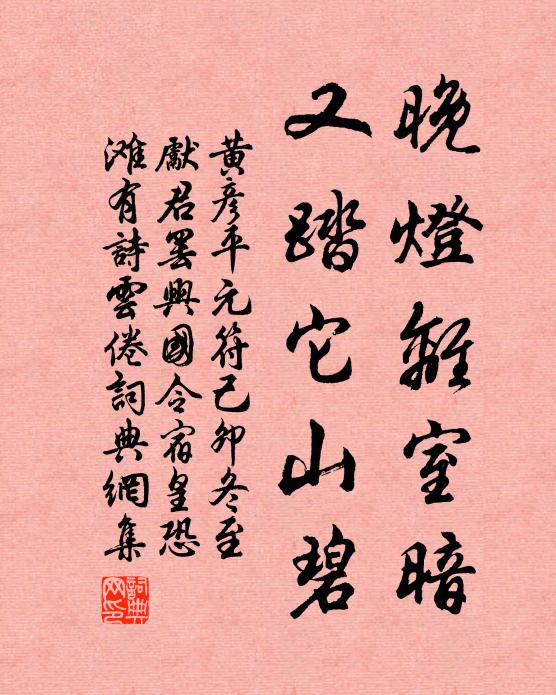 晚燈離室暗
又踏它山碧
黃彥平元符己卯冬至
獻君罢興國令宿皇恐
滩有詩雲倦詞典網集
詞典网印